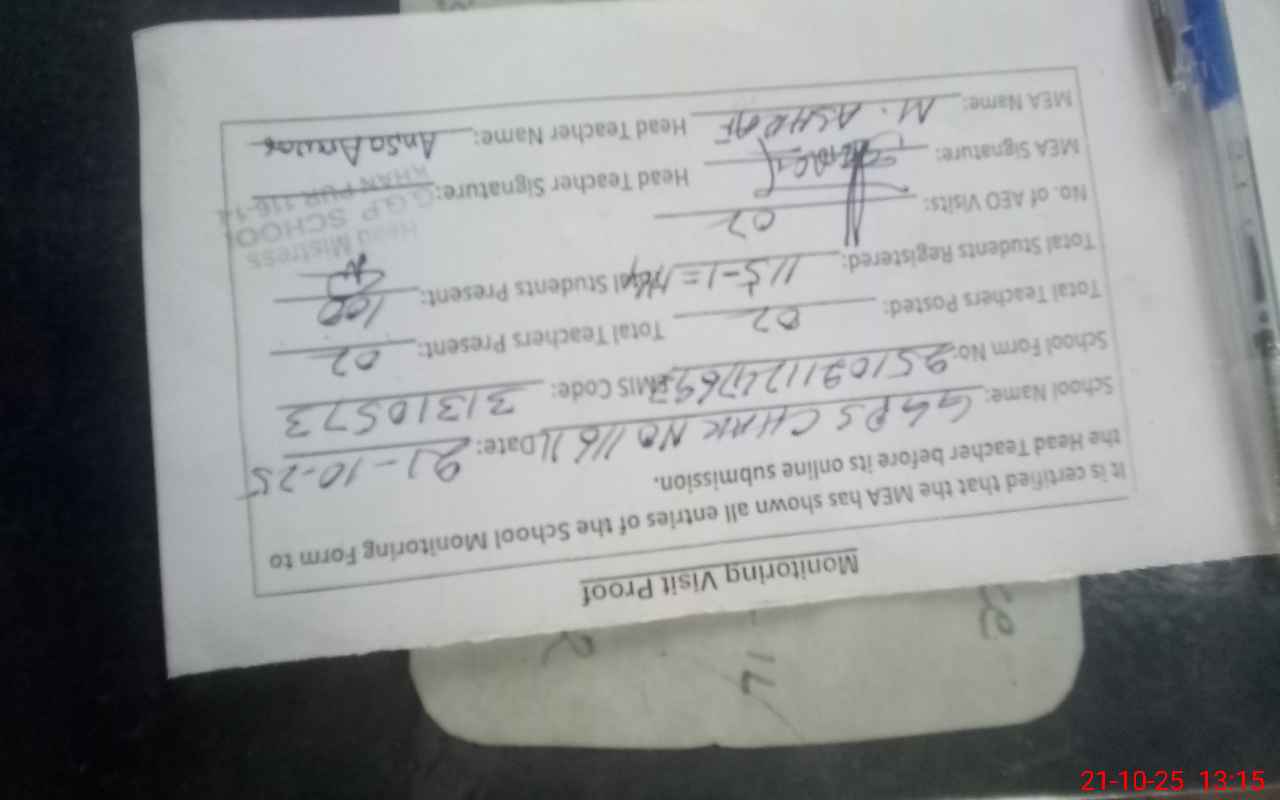 Monitoring Visit Proof
It is certified that the MEA has shown all entries of the School Monitoring Form to
the Head Teacher before its online submission.
School Name: GGPS CHAK NO 116 Date: 21-10-25
School Form No: EMIS Code: 31310573
Total Teachers Posted: 02 Total Teachers Present: 02
Total Students Registered: 115-1= Total Students Present: 100
No. of AEO Visits: 02
Head Mistress
G.G.P SCHOOL
KHAN PUR 116-1L
MEA Signature: Head Teacher Signature:
MEA Name: M. ASHRAF Head Teacher Name: Ansa Anwar
21-10-25 13:15